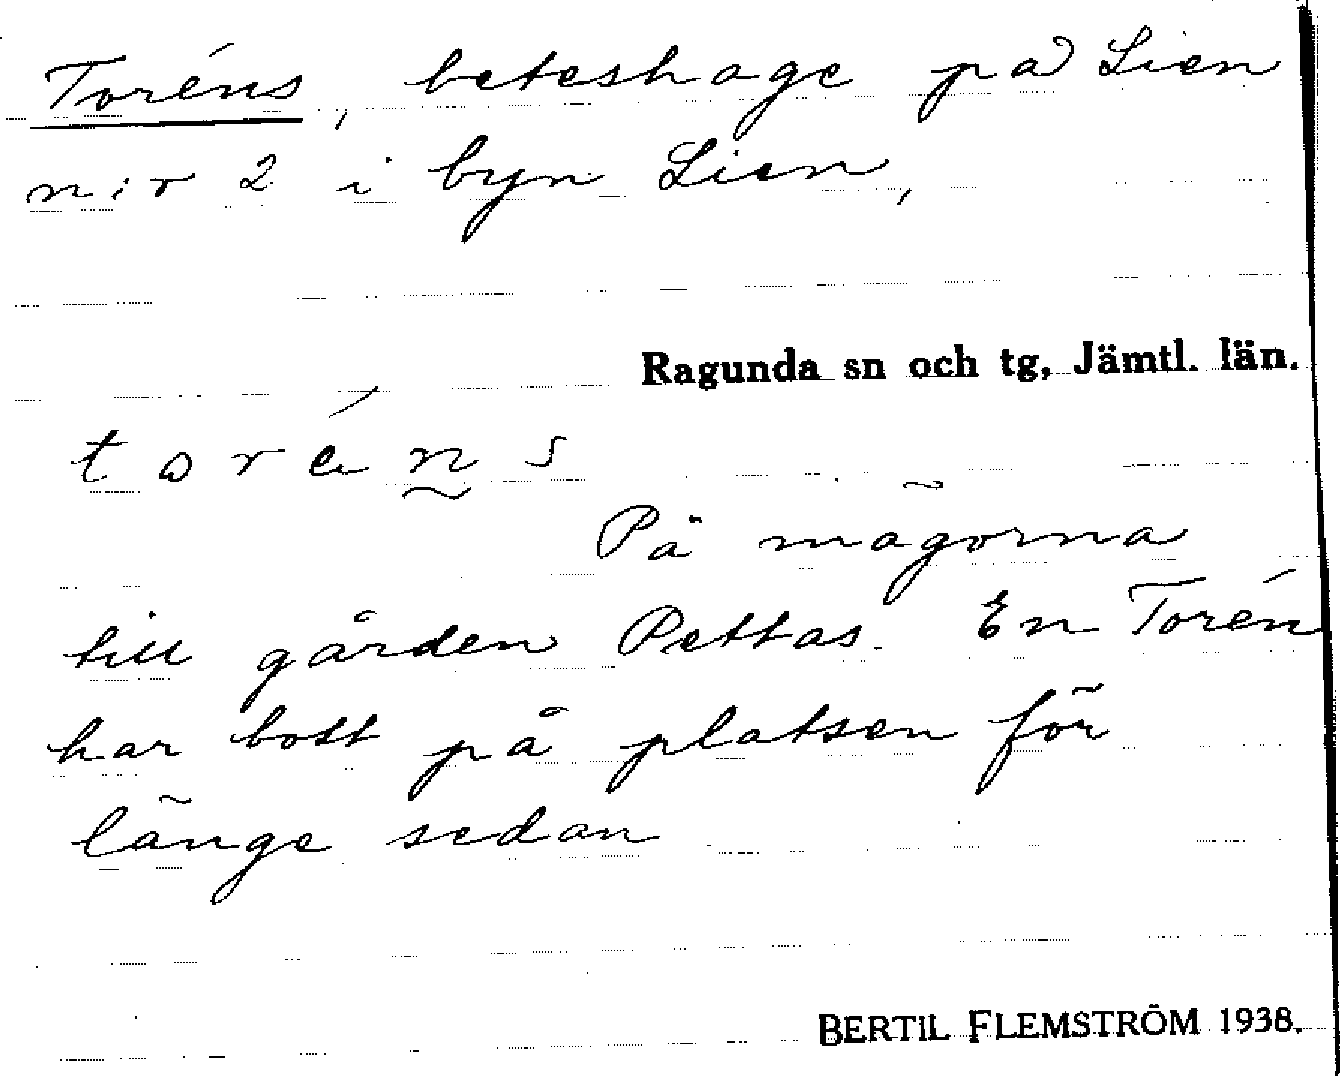 Toréns, beteshage på Lien
n:r 2 i byn Lien,
Ragunda sn och tg, Jämtl. län.
toréns
På mägorna
till gården Pettas. En Torén
har bott på platsen för
länge sedan
BERTIL FLEMSTRÖM 1938.